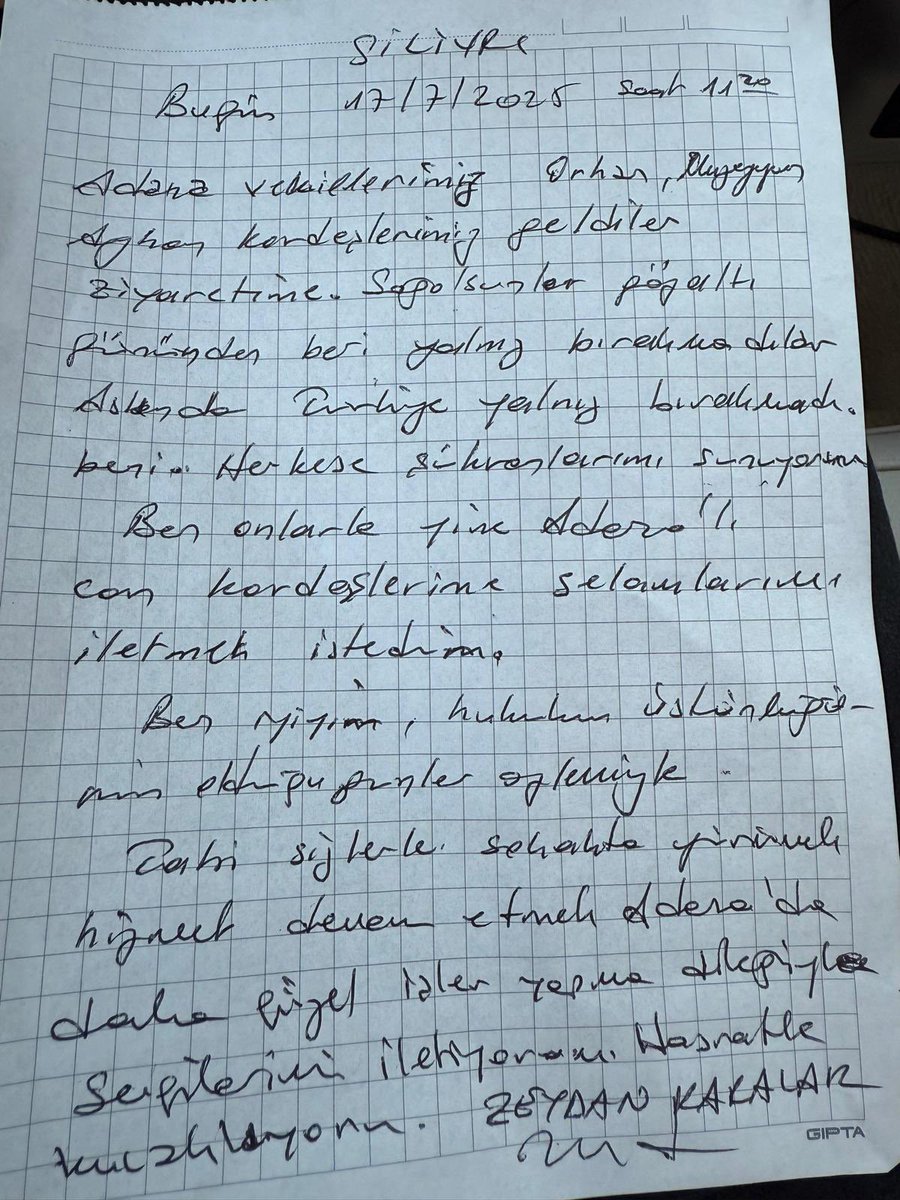 SİLİVRİ
Bugün 17/7/2025 saat 11 20
Adana vekillerimiz Orhan, Müzeyyen
Ayhan kardeşlerimiz geldiler
ziyaretime. Sağolsunlar gözaltı
gününden beri yalnız bırakmadılar
Aslında Türkiye yalnız bırakmadı.
beni. Herkese şükranlarımı sunuyorum
Ben onlarla yine Adana'lı
can kardeşlerime selamlarımı
iletmek istedim.
Ben iyiyim, hukukun üstünlüğü-
günler özlemiyle.
Tabi sizlerle sokakta yürümek
hizmet devam etmek Adana'da
daha güzel işler yapma dileğiyle
Sevgilerimi iletiyorum. Hasretle
kucaklıyorum. ZEYDAN KARALAR
GIPTA